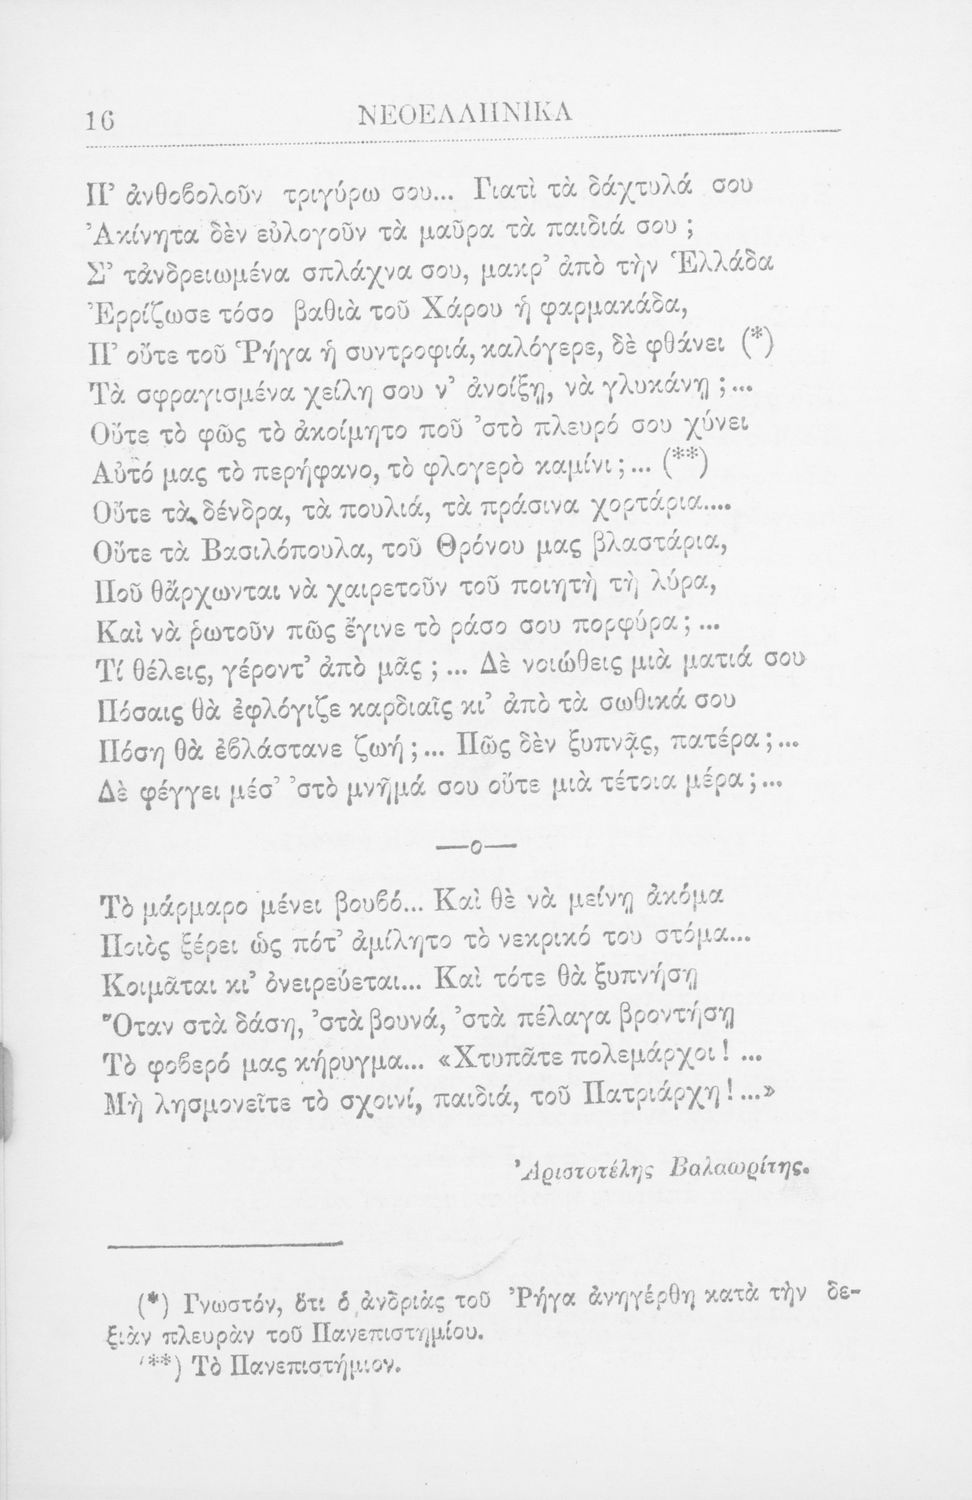 16 ΝΕΟΕΛΛΗΝΙΚΑ
Π’ ἀνθοβολοῦν τριγύρω σου... Γιατὶ τὰ δάχτυλά σου
Ἀκίνητα δὲν εὐλογοῦν τὰ μαῦρα τὰ παιδιά σου ;
Σ’ τἀνδρειωμένα σπλάχνα σου, μακρ’ ἀπὸ τὴν Ἑλλάδα
Ἐρρίζωσε τόσο βαθιὰ τοῦ Χάρου ἡ φαρμακάδα,
Π’ οὔτε τοῦ Ῥήγα ἡ συντροφιά, καλόγερε, δὲ φθάνει (*)
Τὰ σφραγισμένα χείλη σου ν’ ἀνοίξῃ, νὰ γλυκάνῃ ;...
Οὔτε τὸ φῶς τὸ ἀκοίμητο ποῦ ’στὸ πλευρό σου χύνει
Αὐτό μας τὸ περήφανο, τὸ φλογερὸ καμίνι ;... (**)
Οὔτε τὰ δένδρα, τὰ πουλιά, τὰ πράσινα χορτάρια....
Οὔτε τὰ Βασιλόπουλα, τοῦ Θρόνου μας βλαστάρια,
Ποῦ θἄρχωνται νὰ χαιρετοῦν τοῦ ποιητὴ τὴ λύρα,
Καὶ νὰ ῥωτοῦν πῶς ἔγινε τὸ ράσο σου πορφύρα ; ...
Τί θέλεις, γέροντ’ ἀπὸ μᾶς ; ... Δὲ νοιώθεις μιὰ ματιά σου
Πόσαις θὰ ἐφλόγιζε καρδιαῖς κι’ ἀπὸ τὰ σωθικά σου
Πόση θὰ ἐβλάστανε ζωή ;... Πῶς δὲν ξυπνᾷς, πατέρα ;...
Δὲ φέγγει μέσ’ ’στὸ μνῆμά σου οὔτε μιὰ τέτοια μέρα ;...
—o—
Τὸ μάρμαρο μένει βουβό... Καὶ θὲ νὰ μείνῃ ἀκόμα
Ποιὸς ξέρει ὡς πότ’ ἀμίλητο τὸ νεκρικό του στόμα...
Κοιμᾶται κι’ ὀνειρεύεται... Καὶ τότε θὰ ξυπνήσῃ
Ὅταν στὰ δάση, ’στὰ βουνά, ’στὰ πέλαγα βροντήσῃ
Τὸ φοβερό μας κήρυγμα... «Χτυπᾶτε πολεμάρχοι ! ...
Μὴ λησμονεῖτε τὸ σχοινί, παιδιά, τοῦ Πατριάρχη !...»
Ἀριστοτέλης Βαλαωρίτης.
(*) Γνωστόν, ὅτι ὁ ἀνδριὰς τοῦ Ῥήγα ἀνηγέρθη κατὰ τὴν δε-
ξιὰν πλευρὰν τοῦ Πανεπιστημίου.
(**) Τὸ Πανεπιστήμιον.